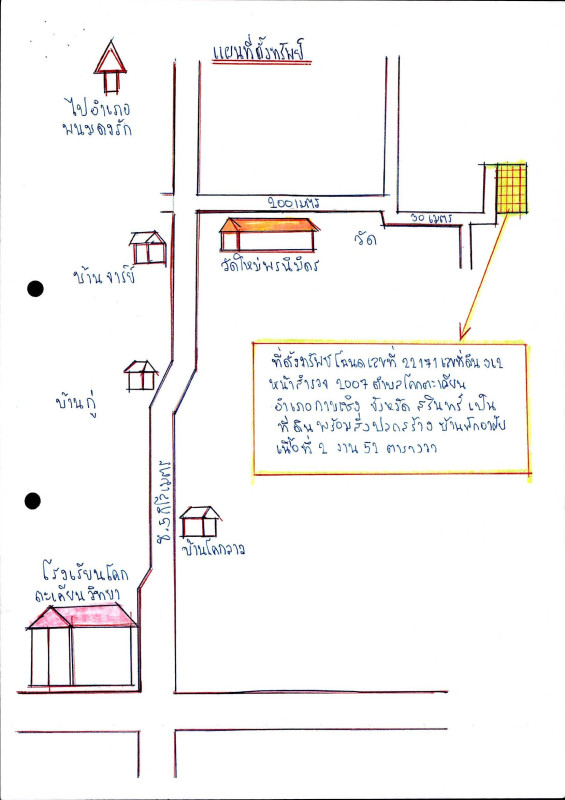 แผนที่ตั้งทรัพย์
ไปอำเภอ
พนมดงรัก
200 เมตร
30 เมตร
วัด
วัดใหม่พรนิมิตร
บ้าน จารย์
บ้านกู่
ที่ตั้งทรัพย์ โฉนดเลขที่ 22171 เลขที่ดิน
หน้าสำรวจ 2007 ตำบลโคกตะเคียน
อำเภอกาบเชิง จังหวัด สุรินทร์ เป็น
ที่ดินพร้อมสิ่งปลูกสร้าง บ้านพักอาศัย
เนื้อที่ 2 งาน 52 ตารางวา
กิโลเมตร
บ้านโคกวาง
โรงเรียนโคก
ตะเคียนวิทยา